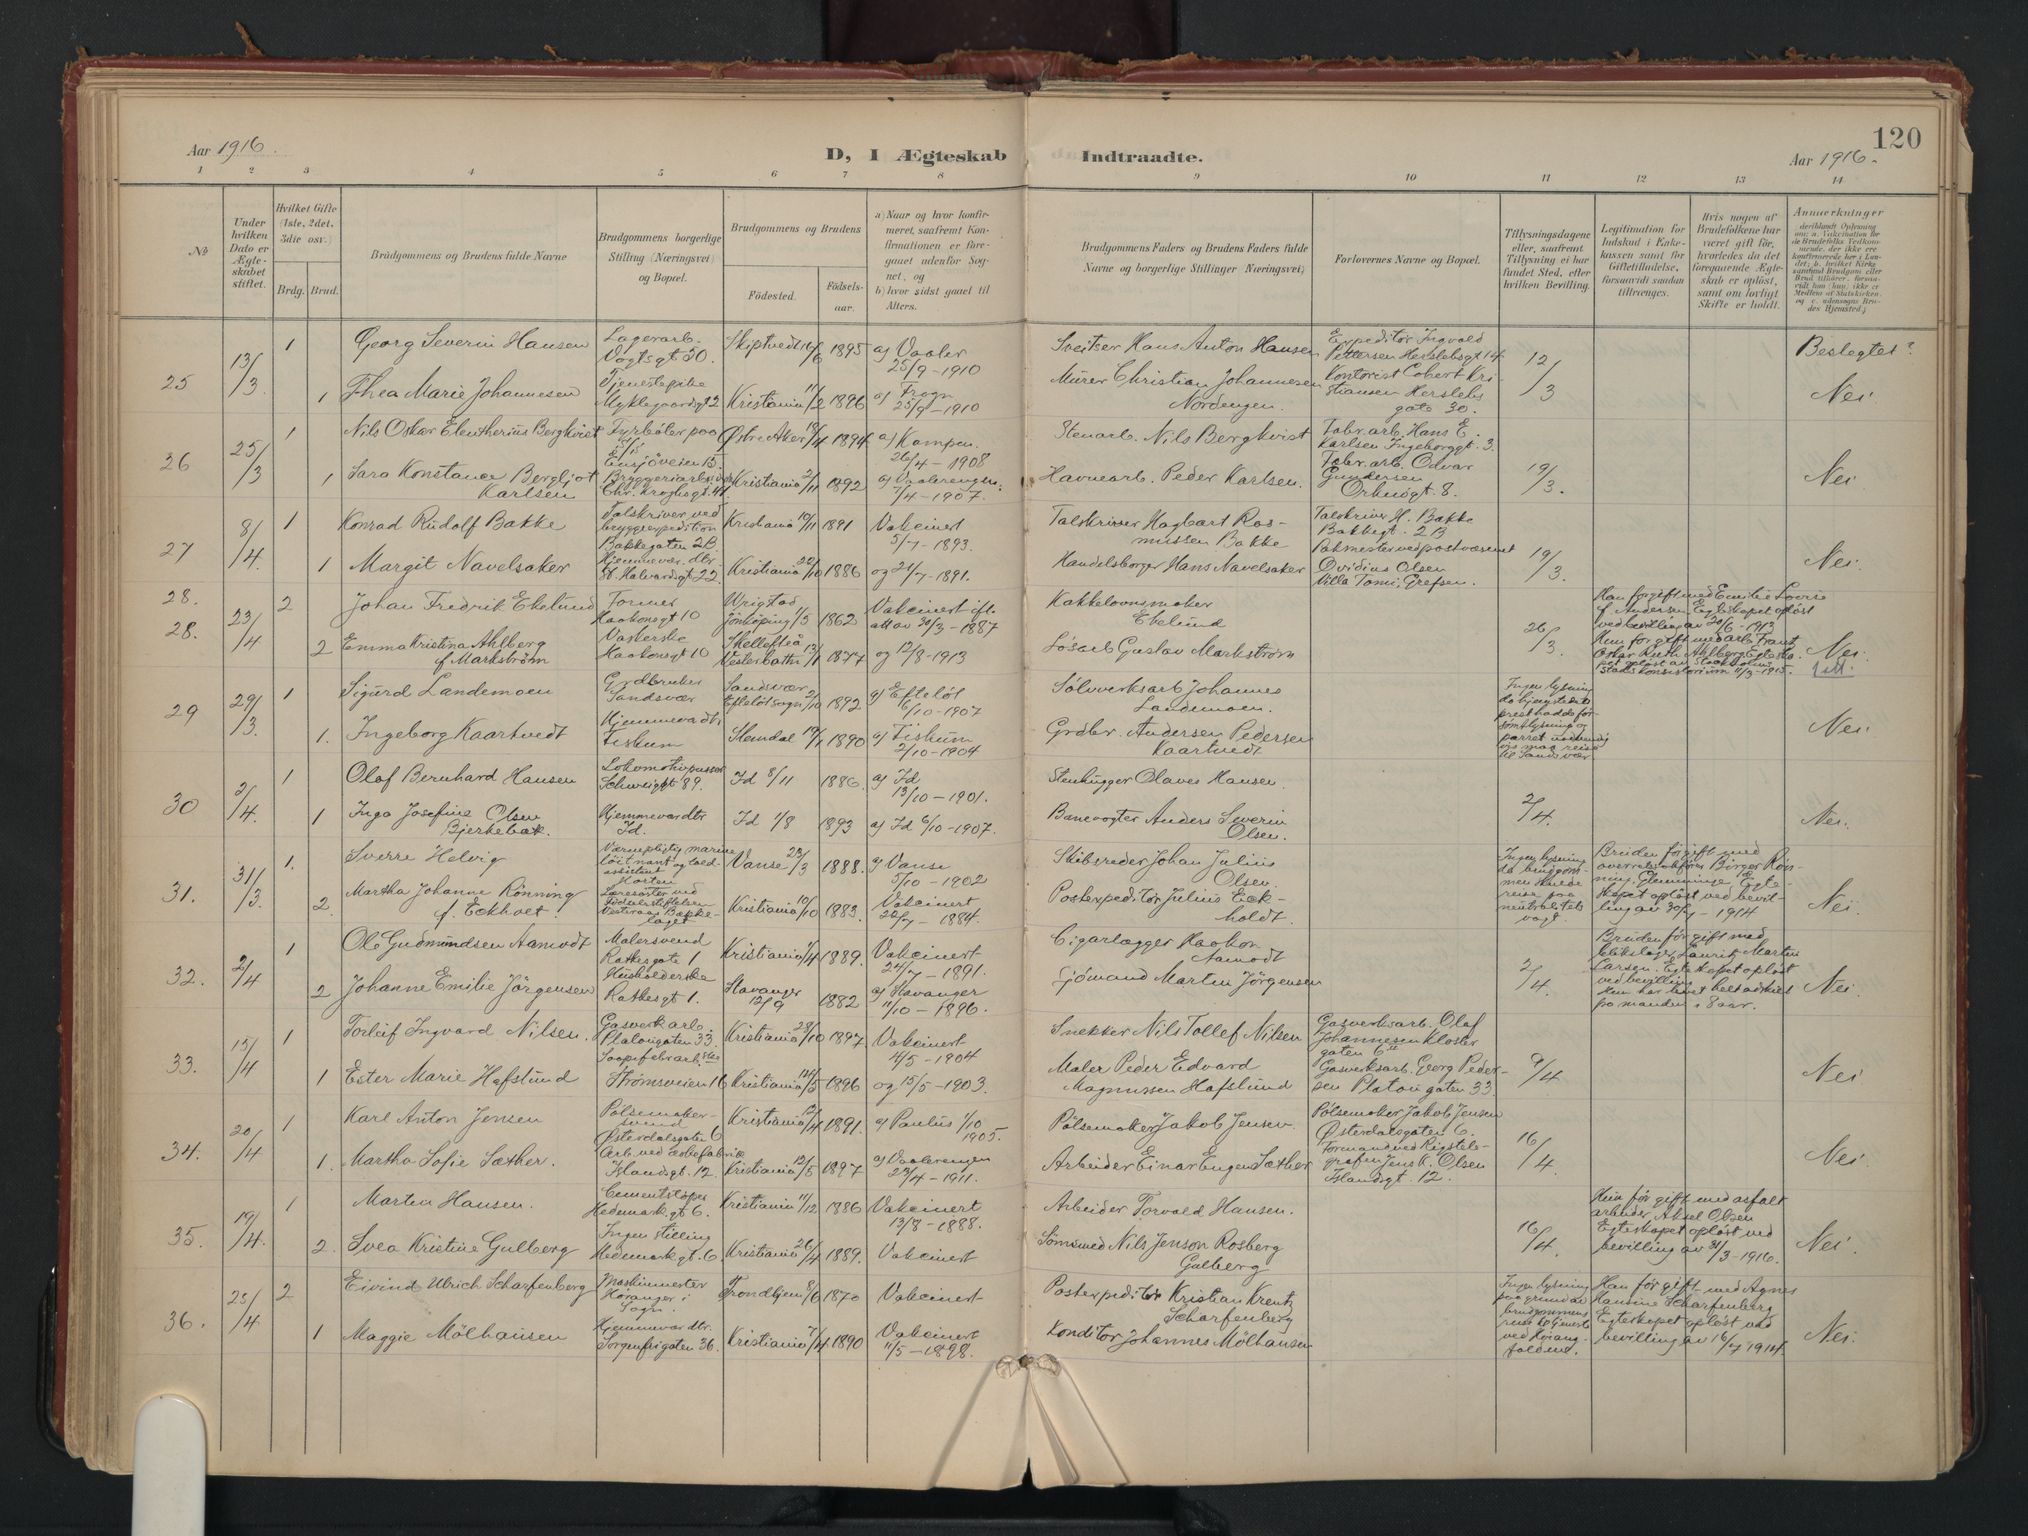 Aar 1916.
D, I Ægteskab Indtraadte.
120
Aar 1916.
1 2 3 4 5 6 7 8 9 10 11 12 13 14
No
Under hvilken Dato er Ægteskabet stiftet.
Hvilket Gifte (1ste, 2det, 3die osv.)
Brdg. Brud.
Brudgommens og Brudens fulde Navne
Brudgommens borgerlige Stilling (Næringsvei) og Bopæl.
Brudgommens og Brudens
Fødested.
Fødselsaar.
a) Naar og hvor konfirmeret, saafremt Konfirmationen er foregaaet udenfor Sognet, og
b) hvor sidst gaaet til Alters.
Brudgommens Faders og Brudens Faders fulde Navne og borgerlige Stillinger Næringsvei)
Forlovernes Navne og Bopæl.
Tillysningsdagene eller, saafremt Tillysning ei har fundet Sted, efter hvilken Bevilling.
Legitimation for Indskud i Enkekassen samt for Giftetilladelse, forsaavidt saadan tiltrænges.
Hvis nogen af Brudefolkene har været gift før, hvorledes da det foregaaende Ægteskab er opløst, samt om lovligt Skifte er holdt.
Anmærkninger
25 13/3 1 Georg Severin Hansen Lagerarb. Vogtsgt 50. Skiptvedt 16/6 1895 a) Vaaler 25/9-1910 Sveitser Hans Anton Hansen Expeditør Ingvald Pettersen Herslebsgt 14. 12/3 Beslegtet?
1 Thea Marie Johannesen Tjenestepike Myklegaardsgt 2 Kristiania 11/2 1896 a) Frogn 25/9-1910 Murer Christian Johannesen Nordengen. Kontorist Cobert Kristiansen Herslebsgate 30. Nei
26 25/3 1 Nils Oskar Eleutherius Bergkvist Fyrbøter Ensjöveien 15. Østre Aker 1894 a) Kampen. 26/4-1908 Stenarb. Nils Bergkvist Fabr.arb. Hans E. Karlsen Ingeborggt. 3. 19/3.
1 Sara Konstance Bergljot Karlsen Bryggeriarb. Chr. Kroghsgt. 41 Kristiania 2/11 1892 a) Vaalerengen. 7/4-1907. Havnearb. Peder Karlsen. Fabr.arb. Odvar Gundersen Orknögt. 8. Nei
27 8/4. 1 Konrad Rudolf Bakke Talskriver ved bryggeexpedition Bakkegaten 2B Kristiania 10/11 1891 Vakcinert 5/7-1893. Talskriver Hagbart Rasmussen Bakke Talskriver H. Bakke Bakkegt. 2B 19/3.
1 Margit Navelsaker Hjemmevær. dtr. St. Halvardsgt 22. Kristiania 22/10 1886 og 21/7-1891. Handelsborger Hans Navelsaker Pakmester ved postvæsenet Ovidius Olsen Villa Tomi, Grefsen. Nei.
28.
28. 23/4 2 Johan Fredrik Ekelund Former Haakonsgt 10 Wrigstad Jönköping 1/3 1862 Vakcinert ifl. att av 30/3-1887 Kakkelovnsmaker Ekelund 26/3. Han før gift med Emilie Lovise f. Andersen. Egteskapet opløst ved bevilling av 20/6-1913
2 Emma Kristina Ahlberg f. Markström Vaskerske Haakonsgt 10 Skellefteå Vesterbotten 13/1 1877 og 12/8-1913 Løsarb Gustav Markström Hun før gift med arb. Frantz Oskar Ahlberg. Nei.
29 29/3. 1 Sigurd Landemoen Grdbruker Sandsvær Sandsvær Efteløt sogn 2/10 1892 a) Efteløt 6/10-1907 Sølvverksarb Johannes Landemoen. Ingen lysning
1. Ingeborg Kaartvedt Hjemmev. dtr Fiskum Stendal 19/1 1890 a) Fiskum 2/10-1904 Grdbr. Andersen Pedersen Kaartvedt Nei
30 2/4. 1 Olaf Bernhard Hansen Lokomotivpusser Schweigtgt 89. Id 8/11 1886. a) Id 13/10-1901. Stenhugger Olaves Hansen.
1 Inga Josefine Olsen Bjerkebæk. Hjemmev. dtr Id. Id 1/8 1893 a) Id 6/10-1907. Banevogter Anders Severin Olsen. 2/4. Nei.
31. 31/3. 1. Sverre Helvig Værnepligtig marineløitnant og toldassistent Horten Vanse 23/3 1888. a) Vanse 5/10-1902 Skibsreder Johan Julius Olsen. Ingen lysning da brudgommen skulde reise paa neutralitetsvagt.
2. Martha Johanne Rönning f. Eckhvet. Kristiania 10/10 1883. Vakcinert 22/7-1884. Postexpeditör Julius Eckholdt. Bruden før gift med overretssakfører Birger Rönning, Glemminge. Egteskapet opløst ved bevilling av 30/1-1914 Nei
32. 2/4 1 Ole Gudmundsen Aamodt Malersvend Rathesgate 1 Kristiania 1/4 1889. Vakcinert 24/7-1891. Cigarlægger Haakon Aamodt
2 Johanne Emilie Jörgensen Husholderske Rathesgt 1. Stavanger 12/9 1882 a) Stavanger 11/10-1896. Sjömand Martin Jörgensen 2/4. Bruden før gift med blikslager Lauritz Martin Larsen. Egteskapet opløst ved bevilling. Hun har levet helt adskilt fra manden i 8 aar. Nei.
33. 15/4 1 Torleif Ingvard Nilsen. Gasverkarb. Platousgaten 33. Kristiania 28/10 1897. Vakcinert 4/5-1904 Snekker Nils Tollef Nilsen Gasverksarb. Olaf Johannesen Klostergaten 6
1 Ester Marie Hafslund Saapefabrarb.ske Strømsveien 16 Kristiania 1896 og 15/5-1903. Maler Peder Edvard Magnussen Hafslund Gasverksarb. Georg Pedersen Platougaten 33. 9/4 Nei
34. 20/4 1 Karl Anton Jensen Pølsemakersvend Østerdalsgaten 6 Kristiania 1891. a) Paulus 1/10 1905. Pølsemaker Jakob Jensen. Pølsemaker Jakob Jensen Østerdalsgaten 6.
1. Martha Sofie Sæther. Islandsgt. 12. Kristiania 12/5 1897 a) Vaalerengen 23/4-1911. Arbeider Einar Eugen Sæther Formand ved Rigstelegrafen Jens K. Olsen Islandsgt 12. 16/4. Nei.
35. 19/4. 1 Martin Hansen. Cementstøper Hedemarkgt 6. Kristiania 11/12 1886 Vakcinert 13/8-1888. Arbeider Torvald Hansen. Hun før gift med asfaltarbeider Aksel Olsen
2. Svea Kristine Gulberg Ingen stilling Hedemarkgt. 6. Kristiania 26/4 1889. Vakcinert Sömsmed Nils Jenson Rosberg Gulberg 16/4. Egteskapet opløst ved bevilling av 31/3-1916. Nei.
36. 25/4 2 Eivind Ulrich Scharfenberg Maskinmester Høianger i Sogn. Trondhjem 8/6 1870 Vakcinert Postexpeditör Kristian Kreutz Scharfenberg Ingen lysning paa grund av brudgommens Han før gift med Agnes Hansine Scharfenberg
1 Maggie Mölhausen Hjemmev. dtr. Sorgenfrigaten 36. Kristiania 7/4 1890 Vakcinert 11/5-1898. Konditor Johannes Mölhausen Egteskapet opløst ved bevilling av 16/7 1914. Nei.